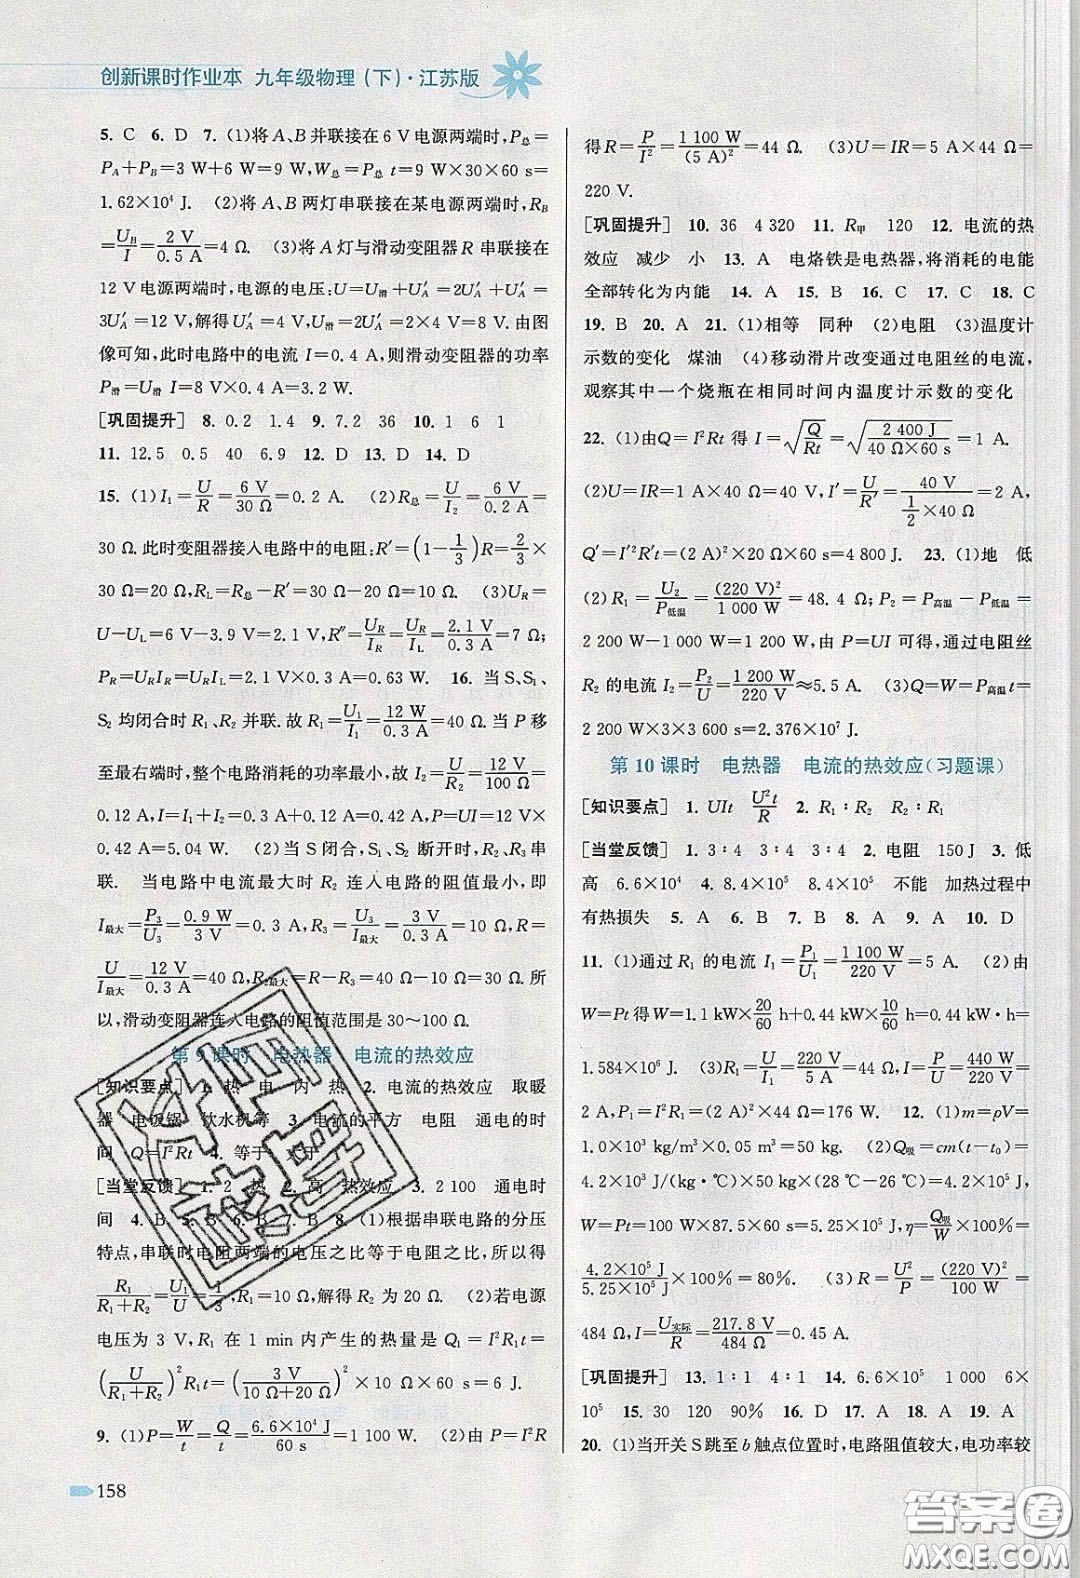 创新课时作业本 九年级物理(下)·江苏版
5. C 6. D 7. (1)将 A、B 并联接在 6 V 电源两端时,P总=
PA+PB=3 W+6 W=9 W,W总=P总 t=9 W×30×60 s=
1.62×10⁴ J. (2)将 A、B 两灯串联接在某电源两端时,RB
=UB/I=2 V/0.5 A=4 Ω. (3)将 A 灯与滑动变阻器 R 串联接在
12 V 电源两端时,电源的电压:U=U滑+U′A=2U′A+U′A=
3U′A=12 V,解得 U′A=4 V,U滑=2×4 V=8 V. 由图
像可知,此时电路中的电流 I=0.4 A,则滑动变阻器的功率
P滑=U滑 I=8 V×0.4 A=3.2 W.
[巩固提升] 8. 0.2 1.4 9. 7.2 36 10. 1 6 1
11. 12.5 0.5 40 6.9 12. D 13. D 14. D
15. (1)I₁=U/R=6 V/30 Ω=0.2 A. (2)R总=U/I₂=6 V/0.2 A=
30 Ω. 此时变阻器接入电路中的电阻:R′=(1-1/3)R=2/3×
30 Ω=20 Ω,RL=R总-R′=30 Ω-20 Ω=10 Ω. (3)UR=
U-UL=6 V-3.9 V=2.1 V,R″=UR/IR=UR/IL=2.1 V/0.3 A=7 Ω;
PR=URIR=URIL=2.1 V×0.3 A=0.63 W. 16. 当 S、S₁、
S₂ 均闭合时 R₁、R₂ 并联. 故 R₁=U₁/I₁=12 W/0.3 A=40 Ω. 当 P 移
至最右端时,整个电路消耗的功率最小. 故 I₂=U₂/R₂=12 V/100 Ω=
0.12 A,I=I₁+I₂=0.3 A+0.12 A=0.42 A,P=UI=12 V×
0.42 A=5.04 W. (2)当 S 闭合,S₁、S₂ 断开时,R₂、R₃ 串
联. 当电路中电流最大时 R₂ 连入电路的阻值最小,即
I最大=P₃/U₃=0.9 W/3 V=0.3 A,R₃=U₃/I最大=3 V/0.3 A=10 Ω,R=
U/I最大=12 V/0.3 A=40 Ω,R₂最大=R-R₃=40 Ω-10 Ω=30 Ω. 所
以,滑动变阻器连入电路的阻值范围是 30~100 Ω.
第 9 课时 电热器 电流的热效应
[知识要点] 1. 热 电 内 热 2. 电流的热效应 取暖
器 电饭锅 饮水机等 3. 电流的平方 电阻 通电的时
间 Q=I²Rt 4. 等于 大于
[当堂反馈] 1. 2 热 2. 高 热效应 3. 2 100 通电时
间 4. B 5. B 6. B 7. B 8. (1)根据串联电路的分压
特点,串联时电阻两端的电压之比等于电阻之比,所以得
R₁/(R₁+R₂)=U₁/U=1/3,R₁=10 Ω,解得 R₂=20 Ω. (2)若电源
电压为 3 V,R₁ 在 1 min 内产生的热量是 Q₁=I²R₁t=
(U/(R₁+R₂))²R₁t=(3 V/(10 Ω+20 Ω))²×10 Ω×60 s=6 J.
9. (1)P=W/t=Q/t=6.6×10⁴ J/60 s=1 100 W. (2)由 P=I²R
得 R=P/I²=1 100 W/(5 A)²=44 Ω. (3)U=IR=5 A×44 Ω=
220 V.
[巩固提升] 10. 36 4 320 11. R甲 120 12. 电流的热
效应 减少 小 13. A 电烙铁是电热器,将消耗的电能
全部转化为内能 14. A 15. B 16. C 17. C 18. C
19. B 20. A 21. (1)相等 同种 (2)电阻 (3)温度计
示数的变化 煤油 (4)移动滑片改变通过电阻丝的电流,
观察其中一个烧瓶在相同时间内温度计示数的变化
22. (1)由Q=I²Rt 得 I=√(Q/Rt)=√(2 400 J/(40 Ω×60 s))=1 A.
(2)U=IR=1 A×40 Ω=40 V,I′=U/R′=40 V/(1/2×40 Ω)=2 A,
Q′=I′²R′t=(2 A)²×20 Ω×60 s=4 800 J. 23. (1)地 低
(2)R₁=U₂/P低温=(220 V)²/1 000 W=48.4 Ω;P₂=P高温-P低温=
2 200 W-1 000 W=1 200 W,由 P=UI 可得,通过电阻丝
R₂ 的电流 I₂=P₂/U=1 200 W/220 V≈5.5 A. (3)Q=W=P高温t=
2 200 W×3×3 600 s=2.376×10⁷ J.
第 10 课时 电热器 电流的热效应(习题课)
[知识要点] 1. UIt U²t/R 2. R₁∶R₂ R₂∶R₁
[当堂反馈] 1. 3∶4 3∶4 3∶4 2. 电阻 150 J 3. 低
高 6.6×10⁴ 4. 8.4×10⁵ 8.4×10⁵ 不能 加热过程中
有热损失 5. A 6. B 7. B 8. A 9. A 10. D
11. (1)通过 R₁ 的电流 I₁=P₁/U₁=1 100 W/220 V=5 A. (2)由
W=Pt 得 W=1.1 kW×20/60 h+0.44 kW×10/60 h=0.44 kW·h=
1.584×10⁶ J. (3)R₁=U/I₁=220 V/5 A=44 Ω,I=P/U=440 W/220 V
=2 A,P₁=I²R₁=(2 A)²×44 Ω=176 W. 12. (1)m=ρV=
1.0×10³ kg/m³×0.05 m³=50 kg. (2)Q吸=cm(t-t₀)=
4.2×10³ J/(kg·℃)×50 kg×(28 ℃-26 ℃)=4.2×10⁵ J,
W=Pt=100 W×87.5×60 s=5.25×10⁵ J,η=Q吸/W×100%=
4.2×10⁵ J/5.25×10⁵ J×100%=80%. (3)R=U²/P=(220 V)²/100 W=
484 Ω,I=U实际/R=217.8 V/484 Ω=0.45 A.
[巩固提升] 13. 1∶1 4∶1 14. 6.6×10⁴ 1 000 6×
10⁵ 15. 30 120 90% 16. D 17. A 18. A 19. C
20. (1)当开关 S 跳至 b 触点位置时,电路阻值较大,电功率较
158
答案圈
MXQE.COM